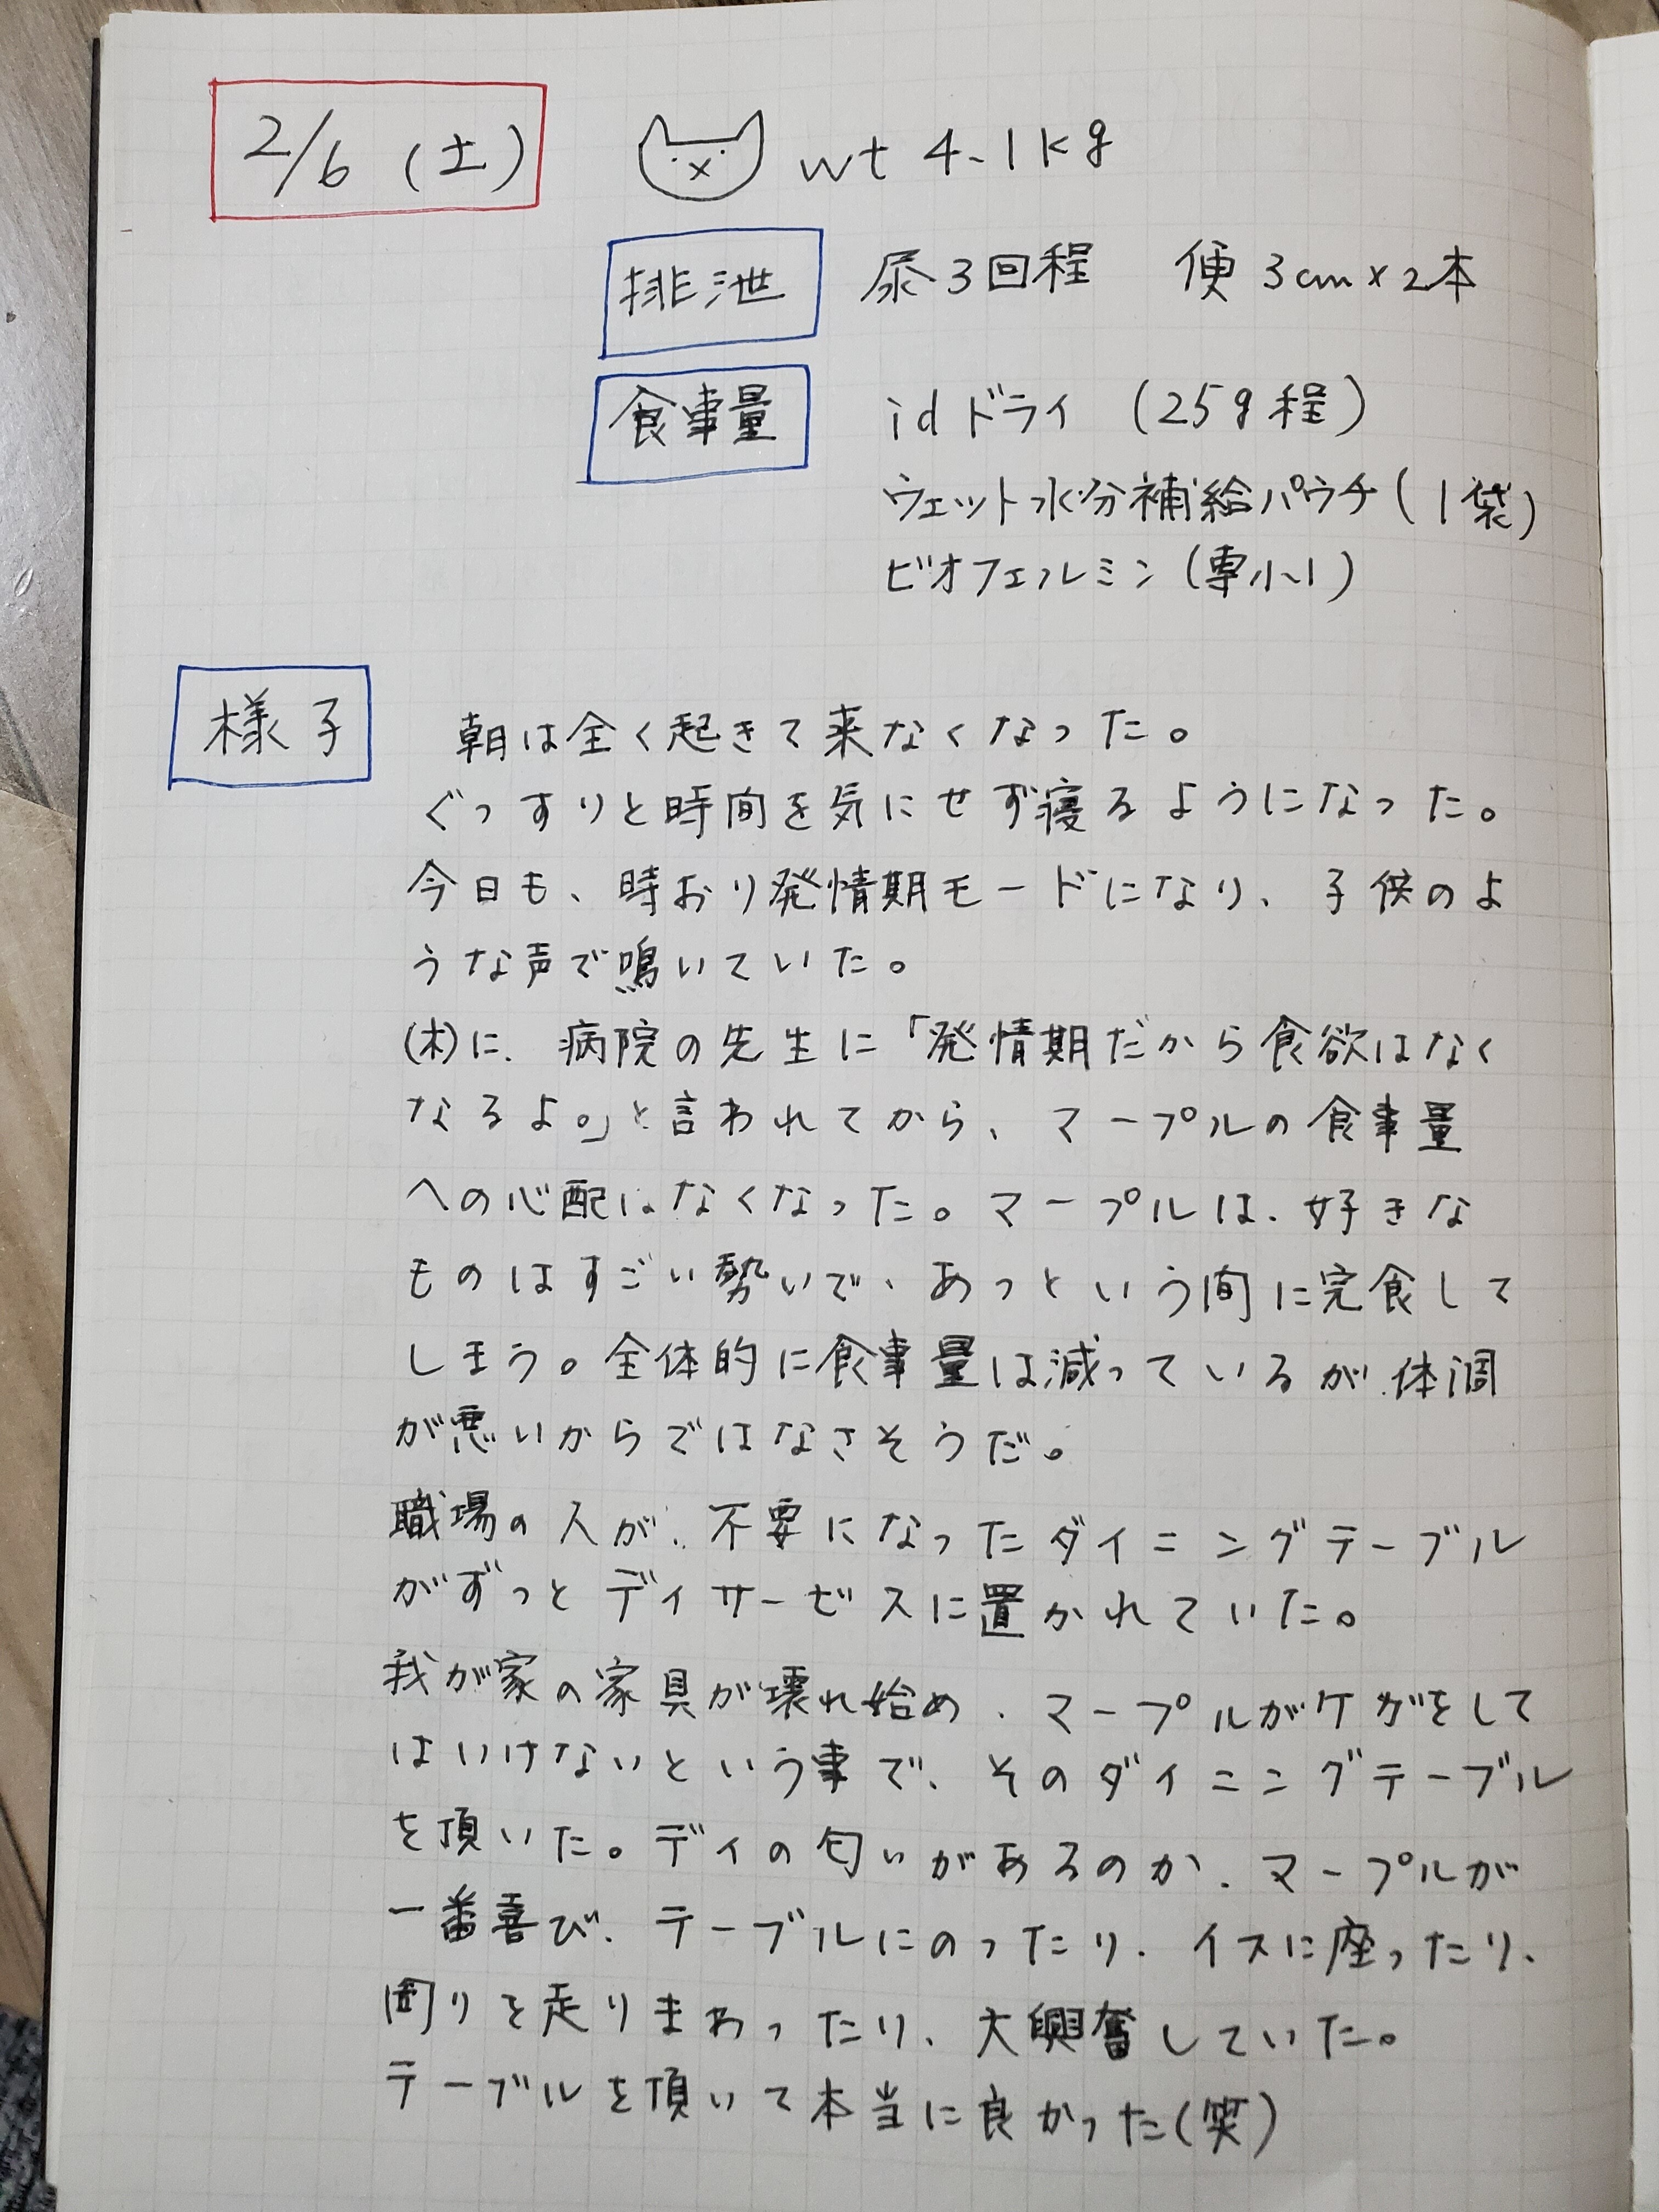 2/6 (土) wt 4.1kg
排泄 尿3回程 便3cm×2本
食事量 idドライ (25g程)
ウェット水分補給パウチ(1袋)
ビオフェルミン(専小1)
様子 朝は全く起きて来なくなった。
ぐっすりと時間を気にせず寝るようになった。
今日も、時おり発情期モードになり、子供のよ
うな声で鳴いていた。
(木)に、病院の先生に「発情期だから食欲はなく
なるよ。」と言われてから、マープルの食事量
への心配はなくなった。マープルは、好きな
ものはすごい勢いで、あっという間に完食して
しまう。全体的に食事量は減っているが、体調
が悪いからではなさそうだ。
職場の人が、不要になったダイニングテーブル
がずっとディサービスに置かれていた。
我が家の家具が壊れ始め、マープルがケガをして
はいけないという事で、そのダイニングテーブル
を頂いた。ディの匂いがあるのか、マープルが
一番喜び、テーブルにのったり、イスに座ったり、
周りを走りまわったり、大興奮していた。
テーブルを頂いて本当に良かった(笑)